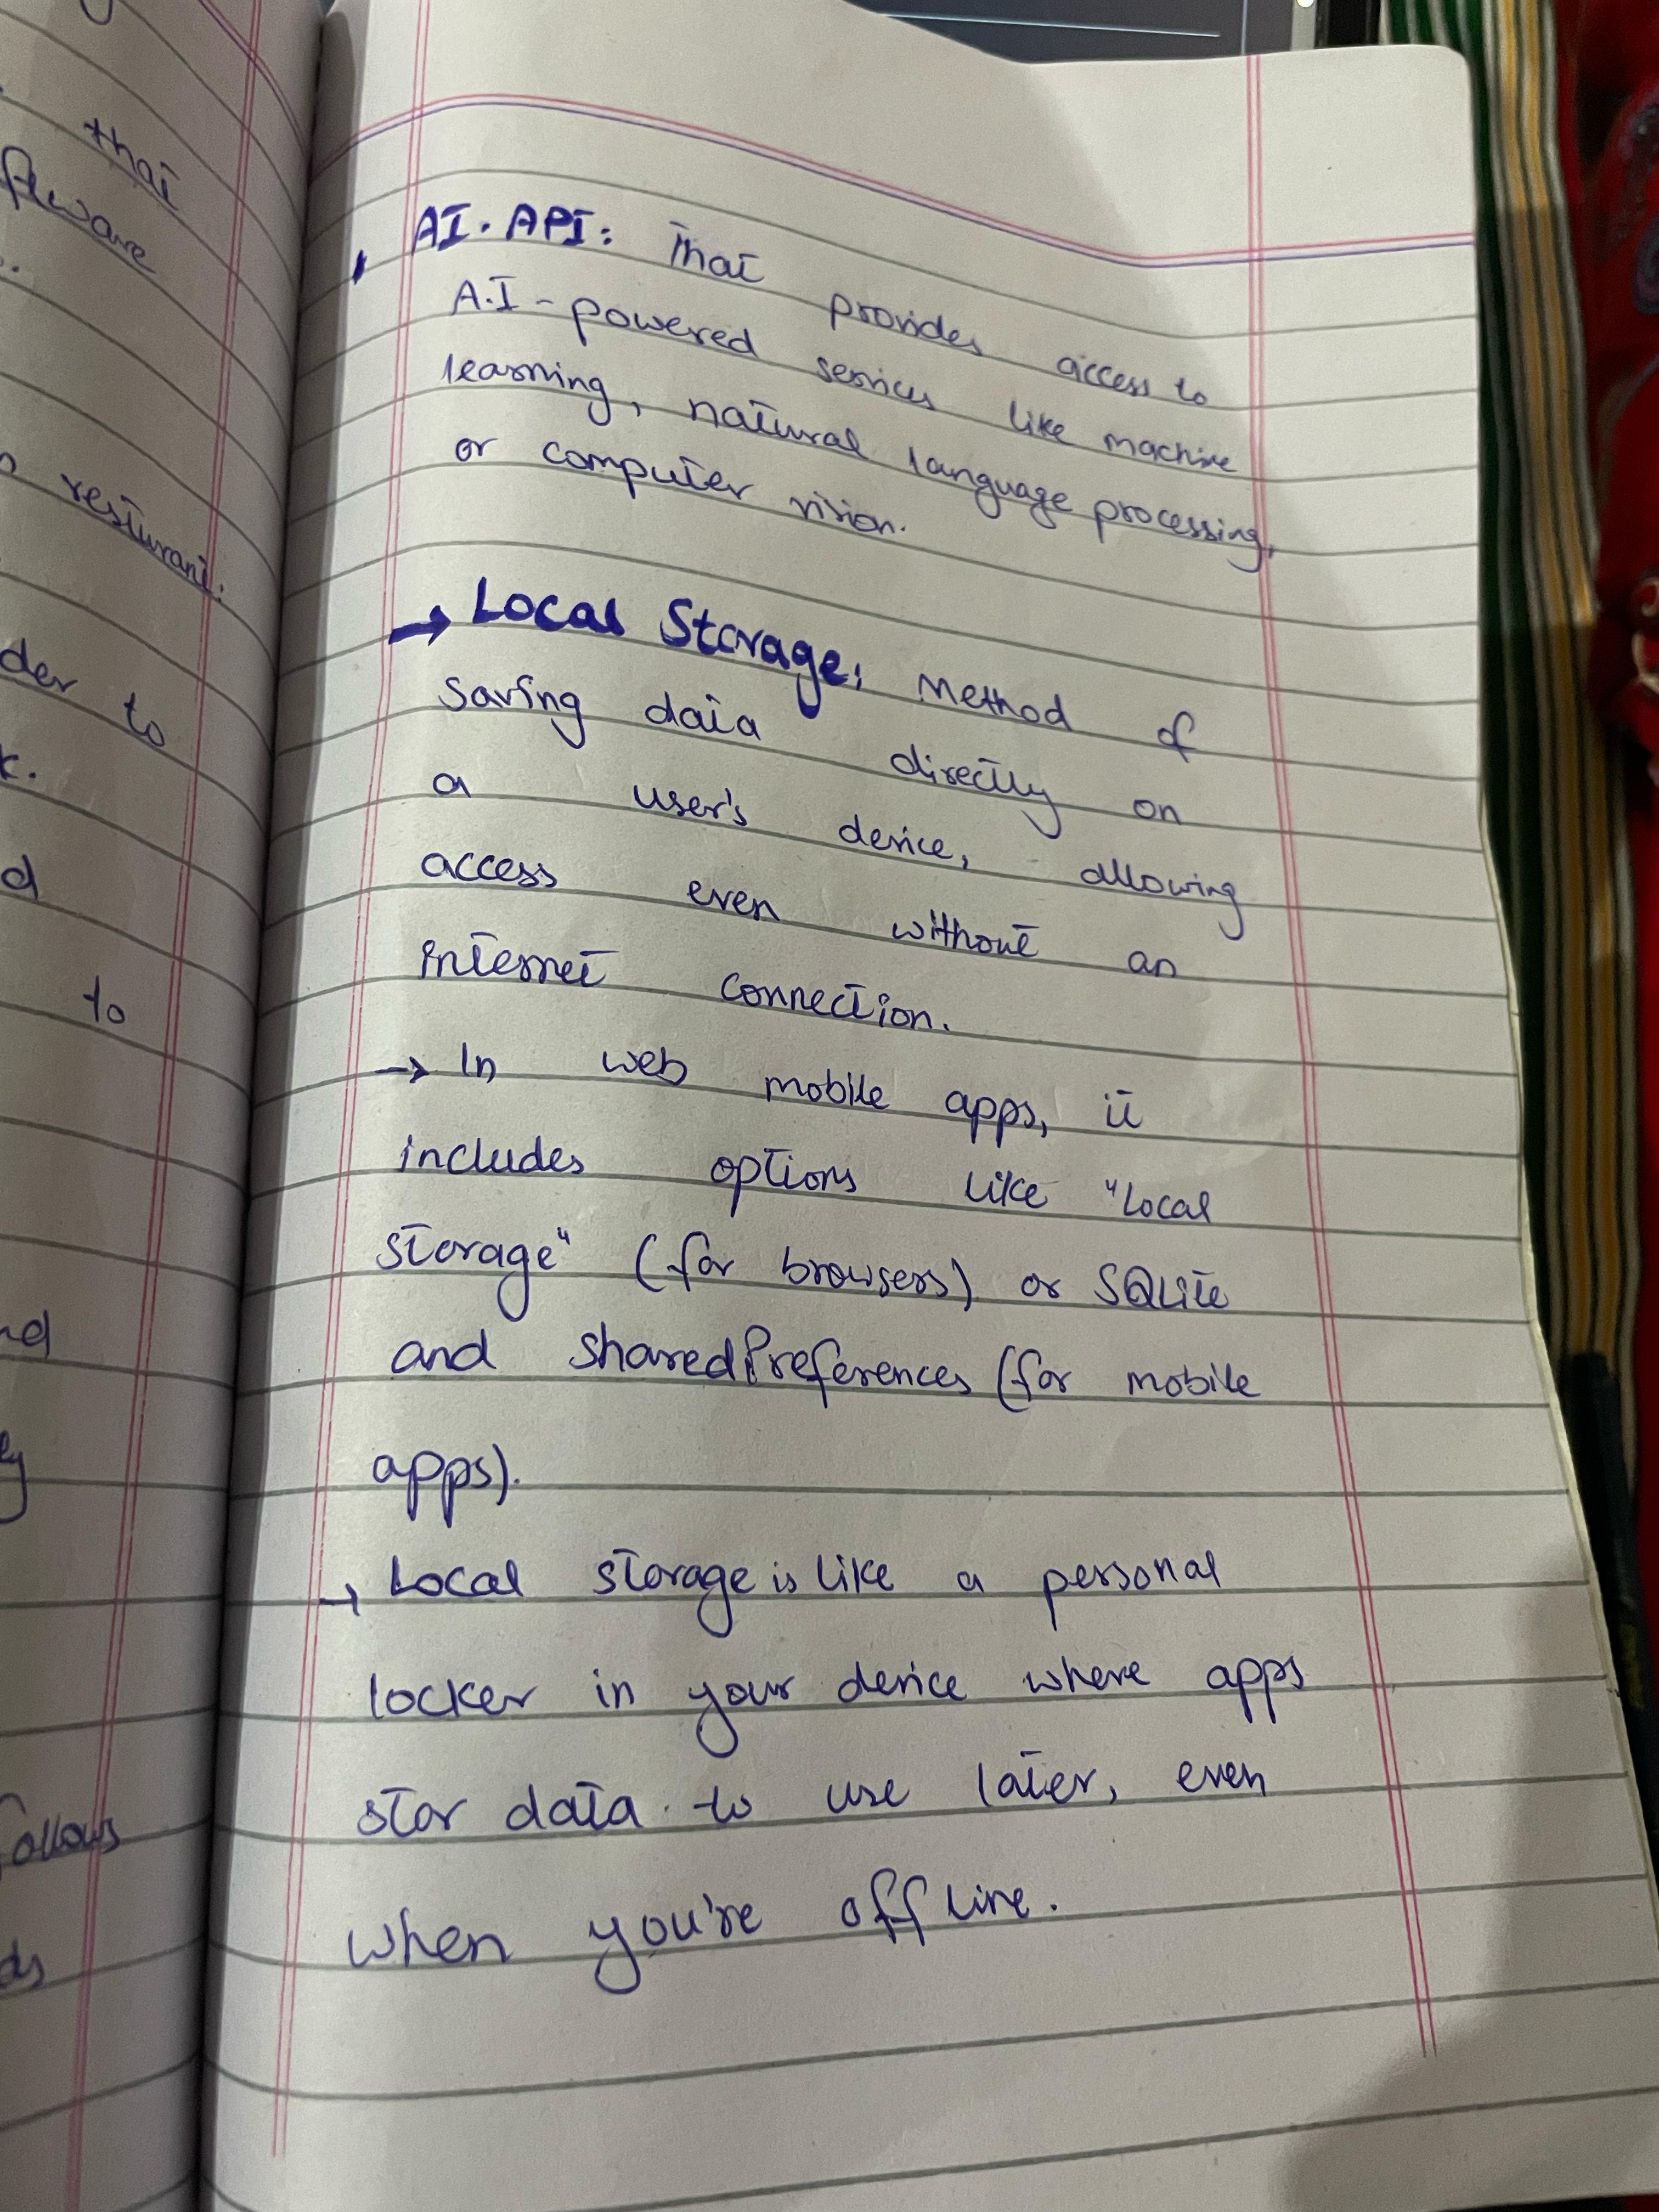 that
ftware
resturant.
der to
k.
d
to
nd
ly
follows
ds
AI. API: That provides access to
A.I-powered services like machine
learning, natural language processing,
or computer vision.
→ Local Storage: Method of
saving data directly on
a user's device, allowing
access even without an
internet connection.
→ In web mobile apps, it
includes options like "Local
storage" (for browsers) or SQLite
and sharedPreferences (for mobile
apps).
→ Local storage is like a personal
locker in your device where apps
stor data to use later, even
when you're offline.